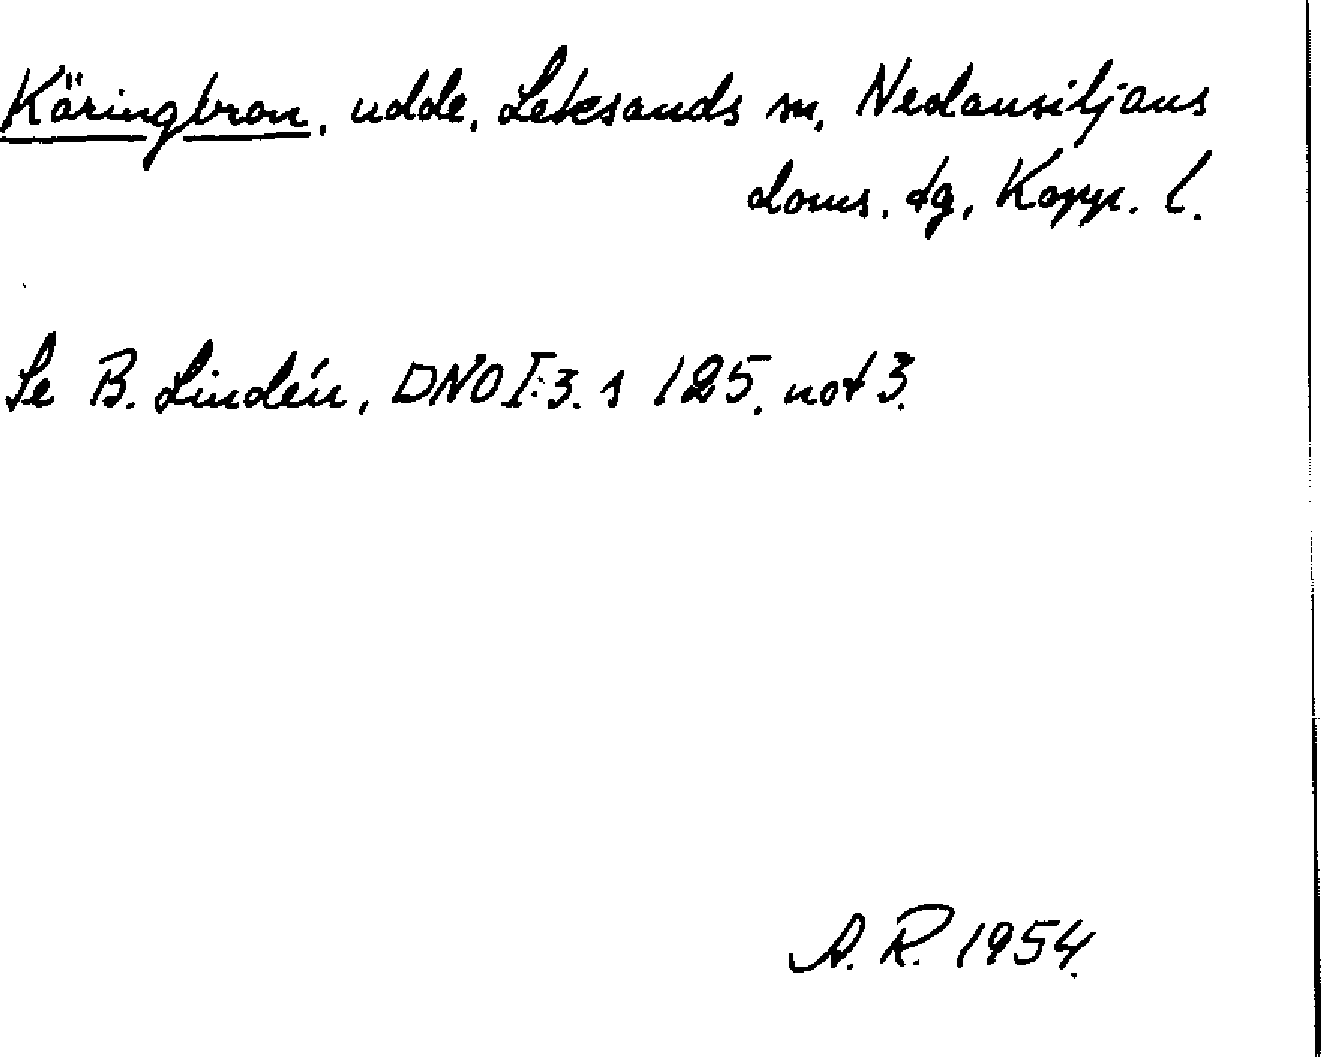 Käringbron, udde, Leksands sn, Nedansiljans
doms. tg, Kopp. l.
Se B. Lindén, DNO I:3. s 125. not 3.
A. R. 1954.